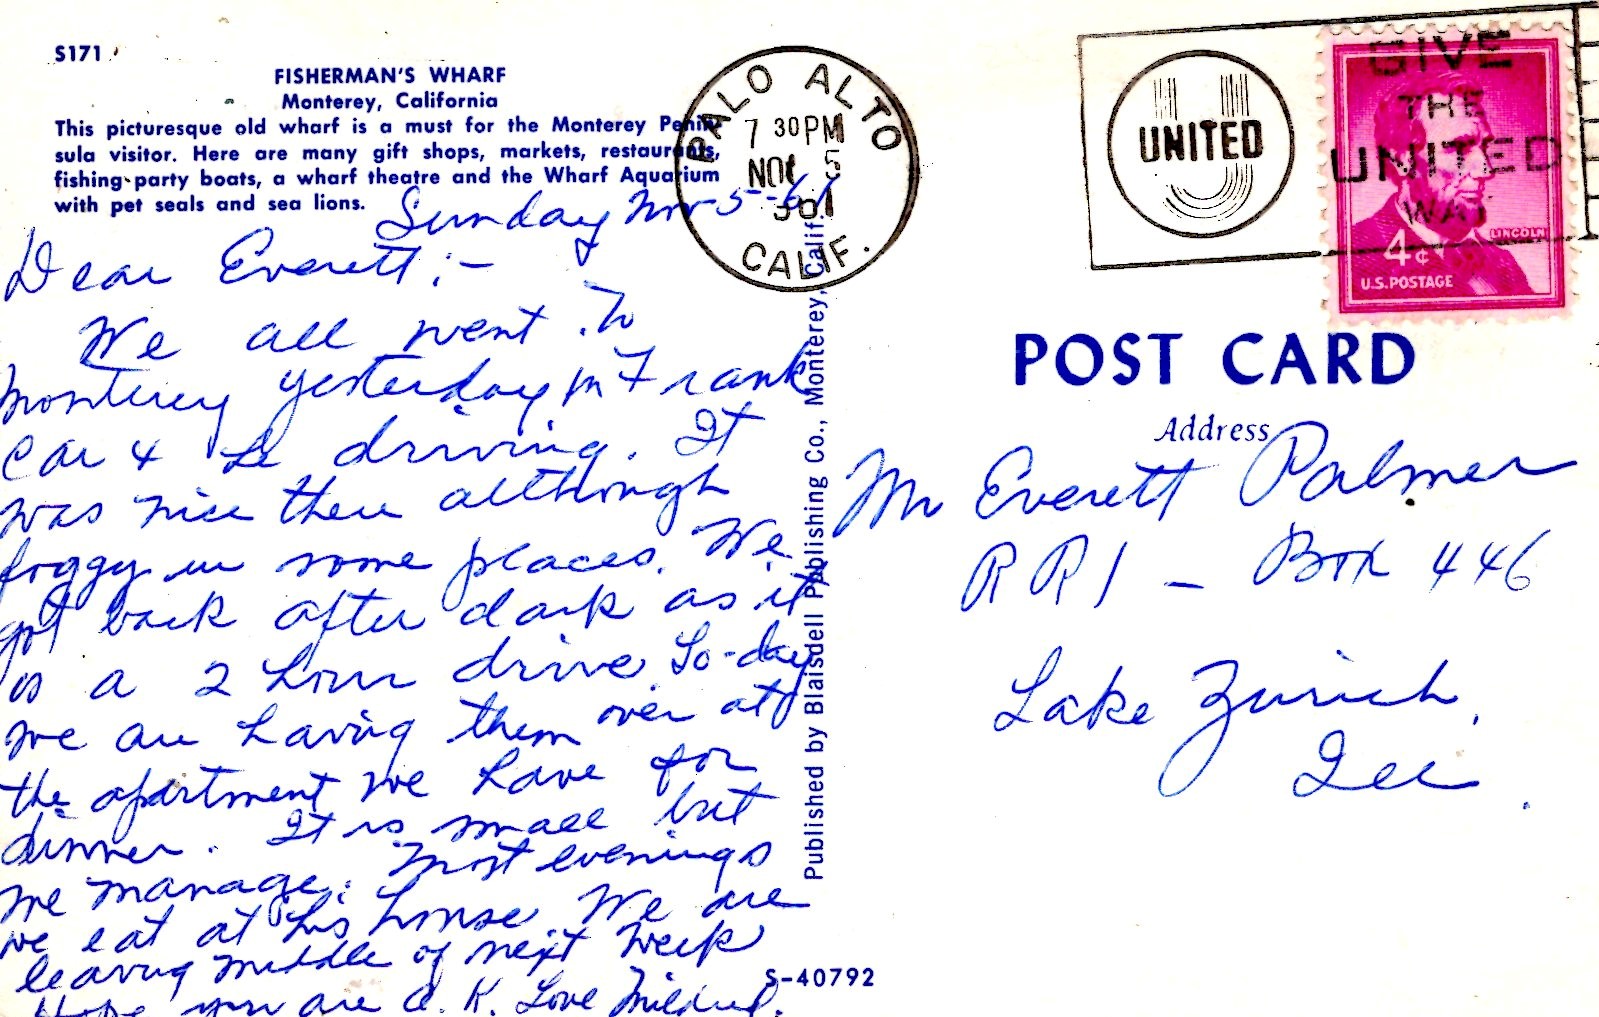 S171
FISHERMAN'S WHARF
Monterey, California
This picturesque old wharf is a must for the Monterey Penin-
sula visitor. Here are many gift shops, markets, restaurants,
fishing party boats, a wharf theatre and the Wharf Aquarium
with pet seals and sea lions.
Sunday Nov 5-61
Dear Everett:-
We all went to
Monterey yesterday in Frank
car & he driving. It
was nice there although
foggy in some places. We
got back after dark as it
is a 2 hour drive. To-day
we are having them over at
the apartment we have for
dinner. It is small but
we manage. Most evenings
we eat at his house. We are
leaving middle of next week
Hope you are O.K. Love Mildred.
PALO ALTO
7 30 PM
NOV 5
1961
CALIF.
Published by Blaisdell Publishing Co., Monterey, Calif.
S-40792
UNITED
GIVE
THE
UNITED
WAY
LINCOLN
4¢
U.S. POSTAGE
POST CARD
Address
Mr Everett Palmer
RR1 - Box 446
Lake Zurich,
Ill.